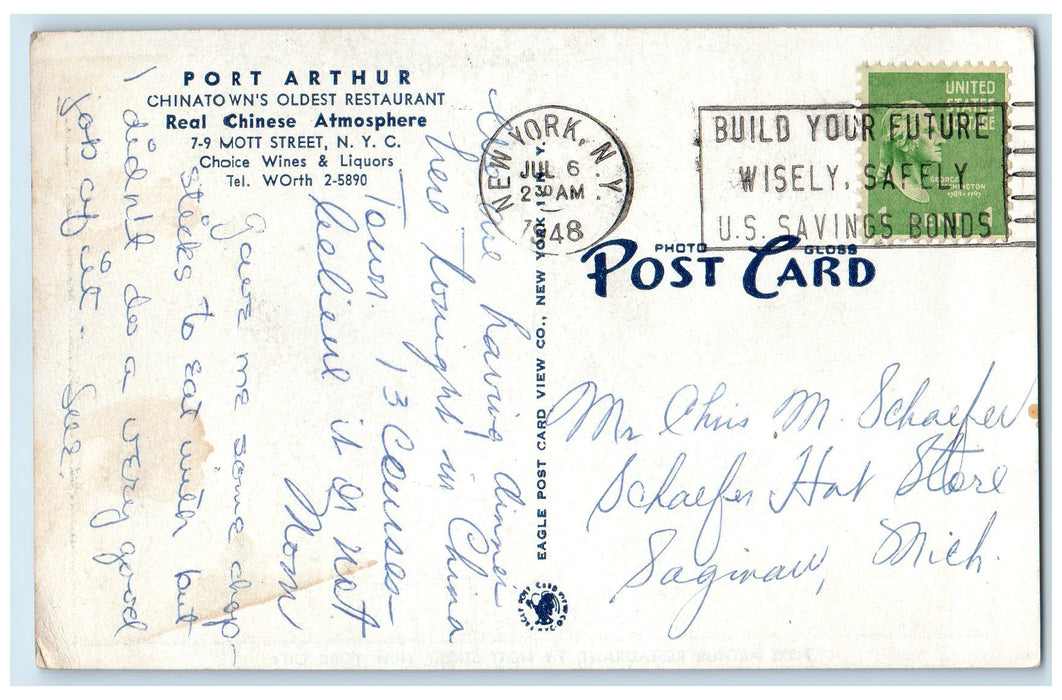 PORT ARTHUR
CHINATOWN'S OLDEST RESTAURANT
Real Chinese Atmosphere
7-9 MOTT STREET, N. Y. C.
Choice Wines & Liquors
Tel. WOrth 2-5890
NEW YORK, N.Y.
JUL 6
2 30 AM
1948
BUILD YOUR FUTURE
WISELY, SAFELY
U.S. SAVINGS BONDS
UNITED
STATES
GEORGE
WASHINGTON
1789-1797
1
PHOTO GLOSS
POST CARD
EAGLE POST CARD VIEW CO., NEW YORK 10, N. Y.
having dinner
here tonight in China
Town. 13 Courses
believe it or not
Norm
Gave me some chop-
sticks to eat with but
I didn't do a very good
job of it.
Mr Chris M. Schaefer
Schaefer Hat Store
Saginaw, Mich.